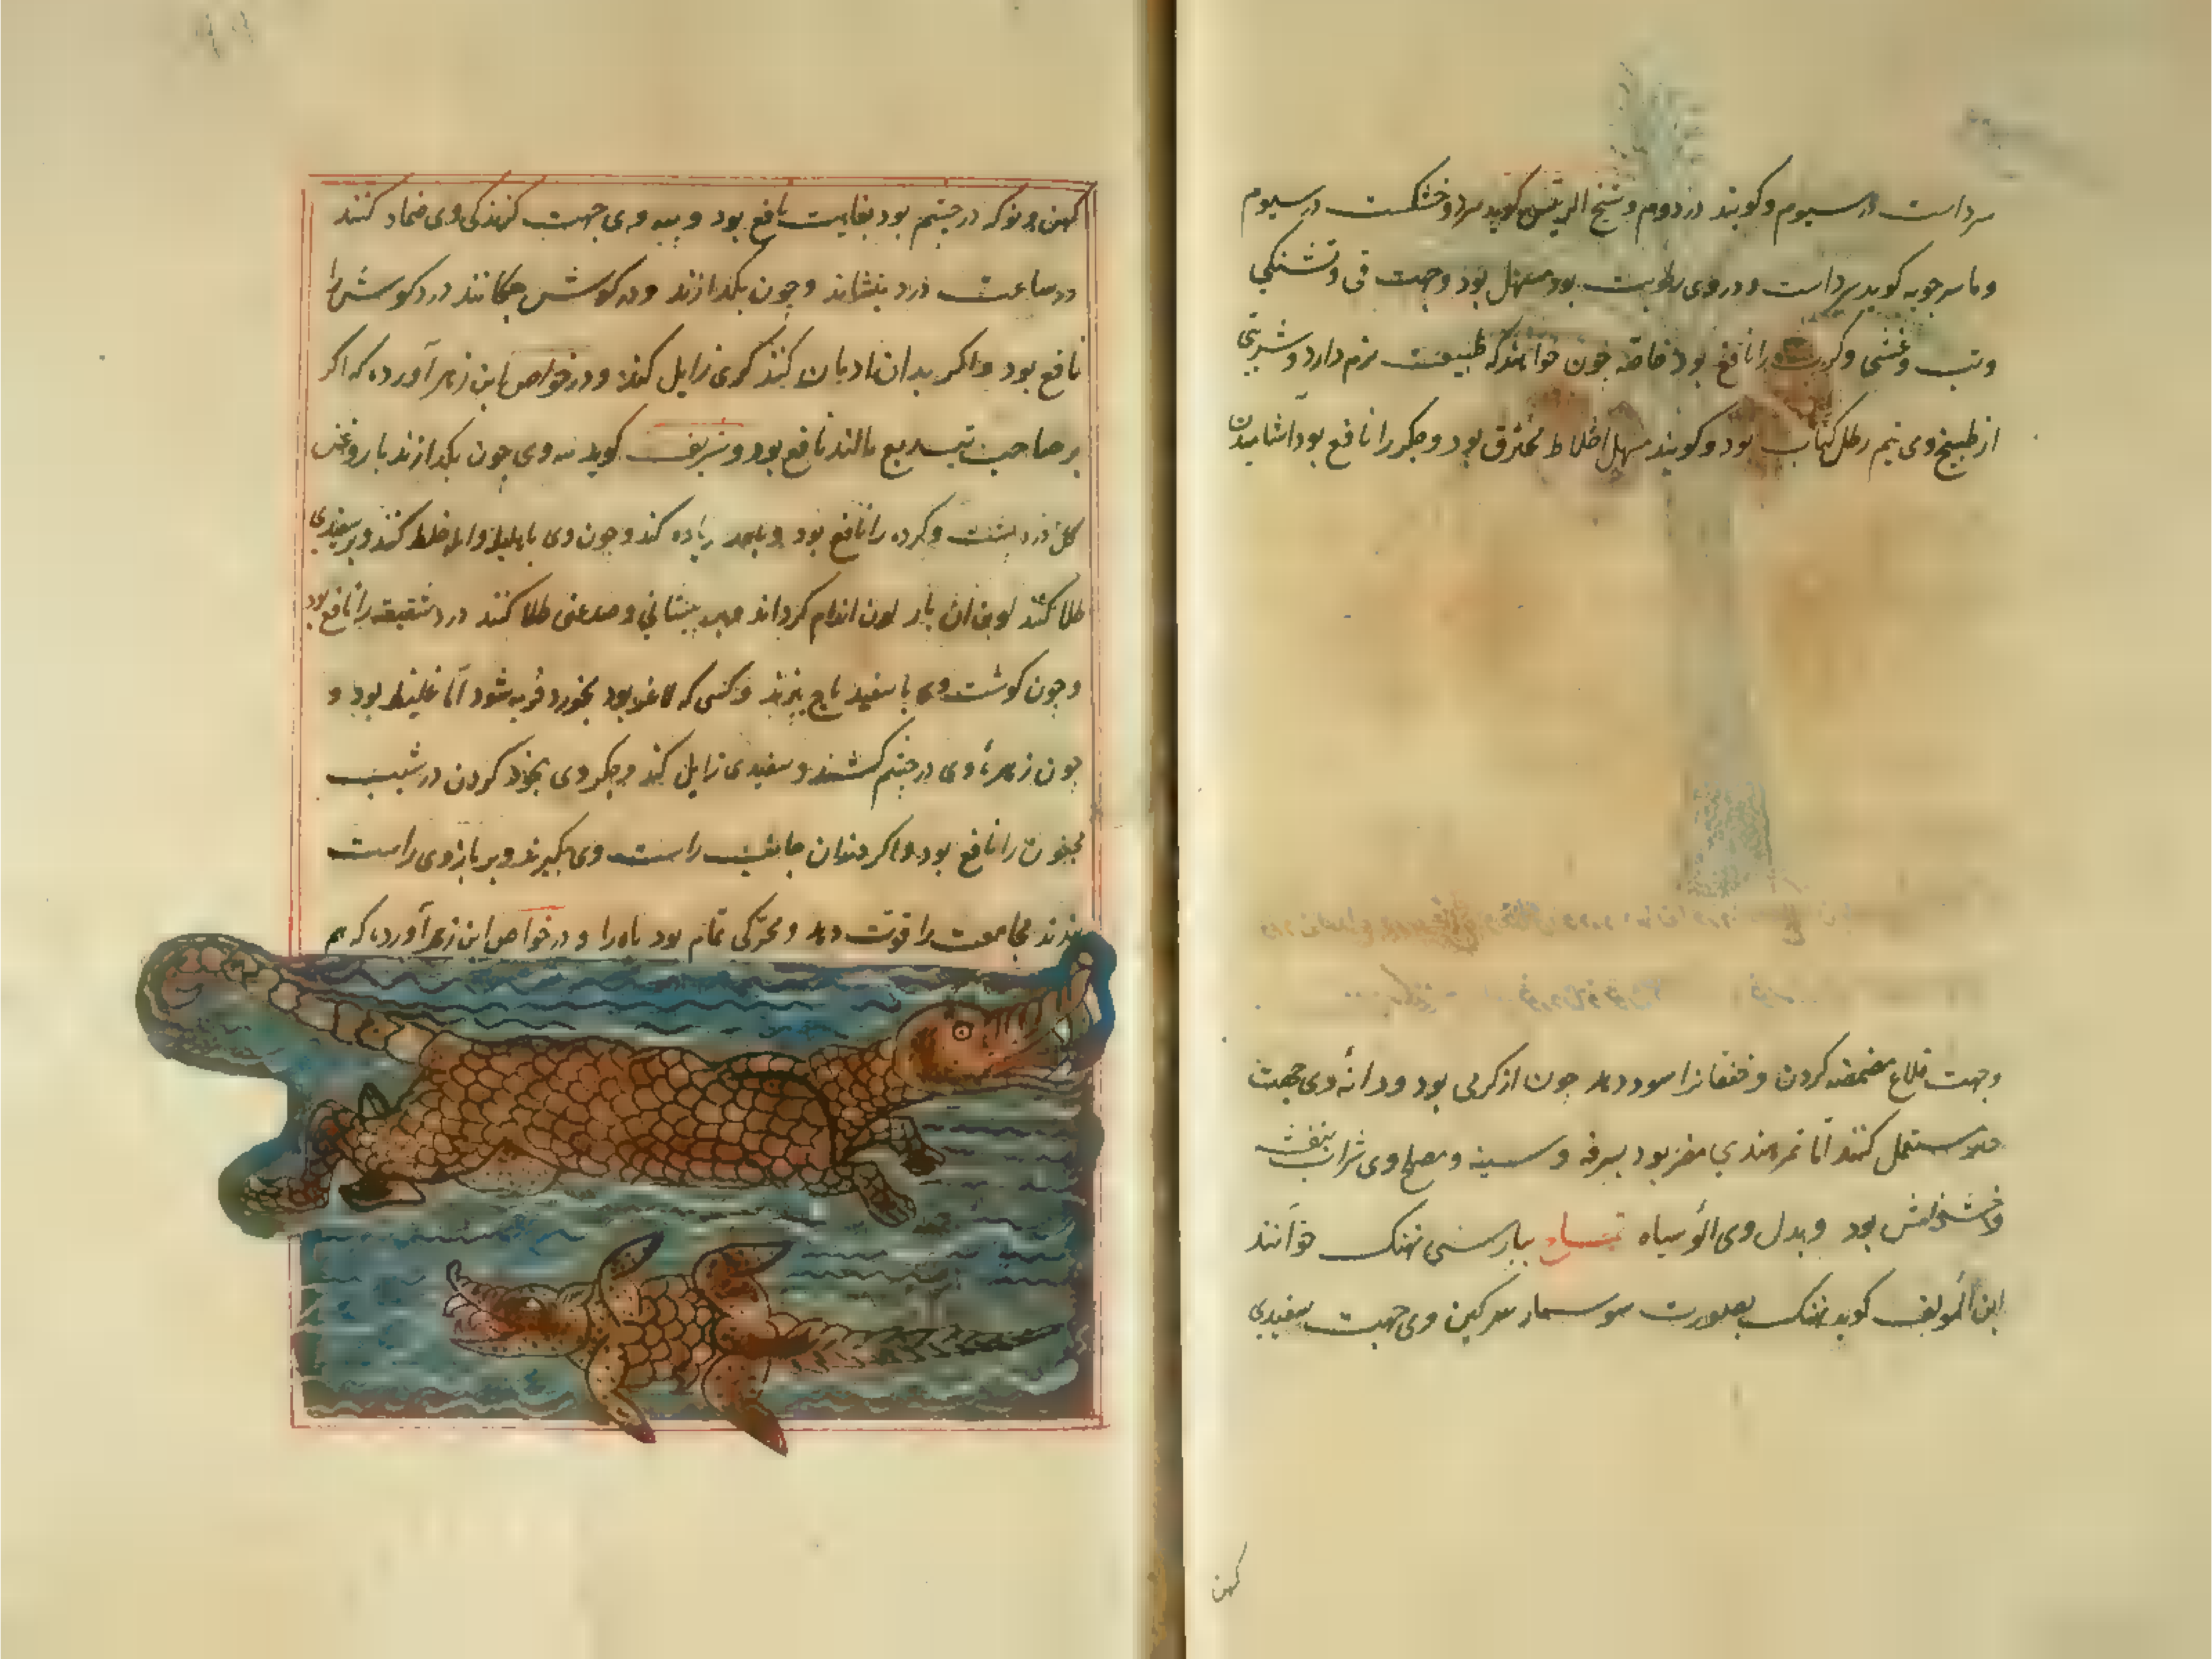 سرداست در سیوم و کویند در دوم و شیخ الریس کوید سرد و خشکست در سیوم
و ماسرجویه کوید سرداست و در وی رطوبت بود مسهل بود و جهت قی و تشنکی
و تب و غشی و کرب را نافع بود خاصه چون خواهند که طبیعت نرم دارد و شربتی
از طبیخ وی نیم رطل کتاب بود و کویند مسهل اخلاط محترق بود و جکر را نافع بود آشامیدن
وجهت قلاع مضمضه کردن و خفقانرا سود دهد چون از کرمی بود و دانه وی جهت
مستعمل کنند اما تمر هندی مضر بود بسرفه و سینه و مصلح وی شراب بنفشه
و خشخاش بود و بدل وی آلو سیاه تمساح بپارسی نهنک خوانند
ابن المولف کوید نهنک بصورت سوسمار سرکین وی جهت سفیدی
کهن
کهن و نو که در چشم بود بغایت نافع بود و پیه وی جهت کزندکی وی ضماد کنند
در ساعت درد بنشاند و چون بکدازند و در کوش چکانند درد کوش را
نافع بود و اکر بدان ادمان کنند کری زایل کند و در خواص ابن زهر آورده که اکر
بر صاحب تب ربع مالند نافع بود و شریف کوید پیه وی چون بکدازند با روغن
کل درد پشت و کرده را نافع بود و زیاده کند و چون وی با هلیله و امله خلط کنند و بر سفیدی
طلا کنند لون آن بار لون اندام کرداند و بر پیشانی و صدغین طلا کنند درد شقیقه را نافع بود
و چون کوشت وی با سفید باج بپزند و کسی که لاغر بود بخورد فربه شود اما غلیظ بود و
چون زهره وی در چشم کشند و سفیدی زایل کند و جکر وی بخور کردن در شب
مجنون را نافع بود و اکر دندان جانب راست وی بکیرند و بر بازوی راست
بندند مجامعت را قوت دهد و محرکی تمام بود باه را و در خواص ابن زهر آورده که هم